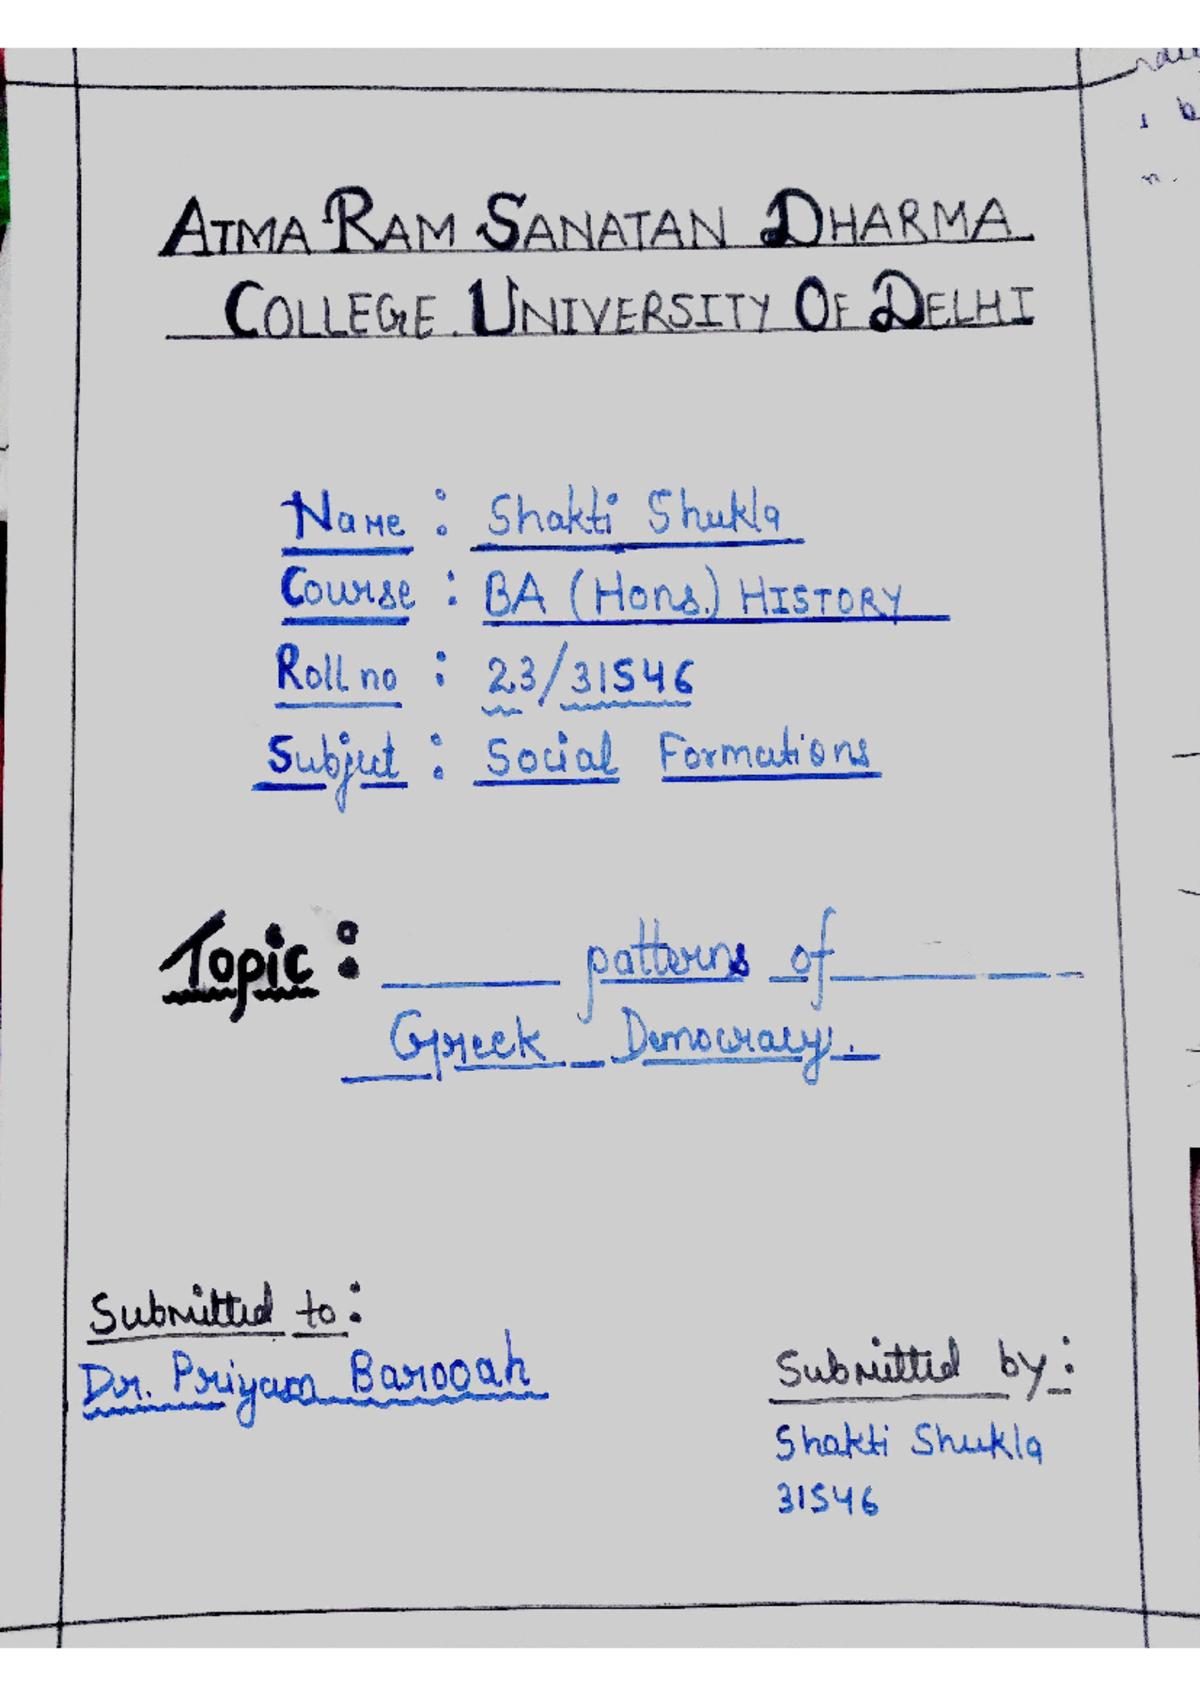 ATMA RAM SANATAN DHARMA
COLLEGE UNIVERSITY OF DELHI
Name : Shakti Shukla
Course : BA (Hons.) HISTORY
Roll no : 23/31546
Subject : Social Formations
Topic : patterns of
Greek Democracy.
Submitted to :
Dr. Priyam Barooah
Submitted by :
Shakti Shukla
31546